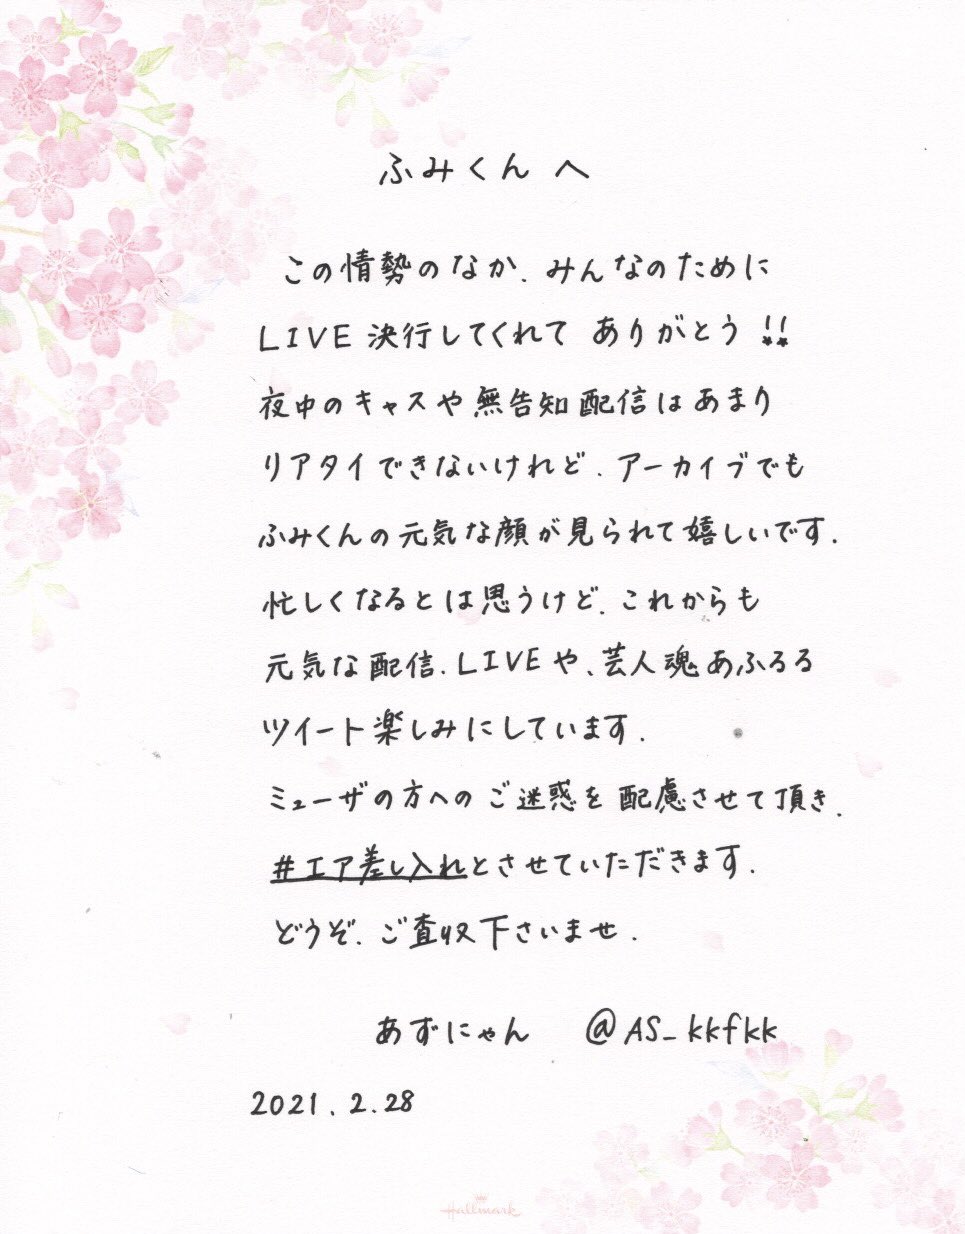 ふみくん へ
この情勢のなか、みんなのために
LIVE 決行してくれて ありがとう!!
夜中のキャスや無告知配信はあまり
リアタイできないけれど、アーカイブでも
ふみくんの元気な顔が見られて嬉しいです。
忙しくなるとは思うけど、これからも
元気な配信、LIVEや、芸人魂あふるる
ツイート楽しみにしています。
ミューザの方へのご迷惑を配慮させて頂き、
#エア差し入れとさせていただきます。
どうぞ、ご査収下さいませ。
あずにゃん @AS_kkfkk
2021.2.28
Hallmark